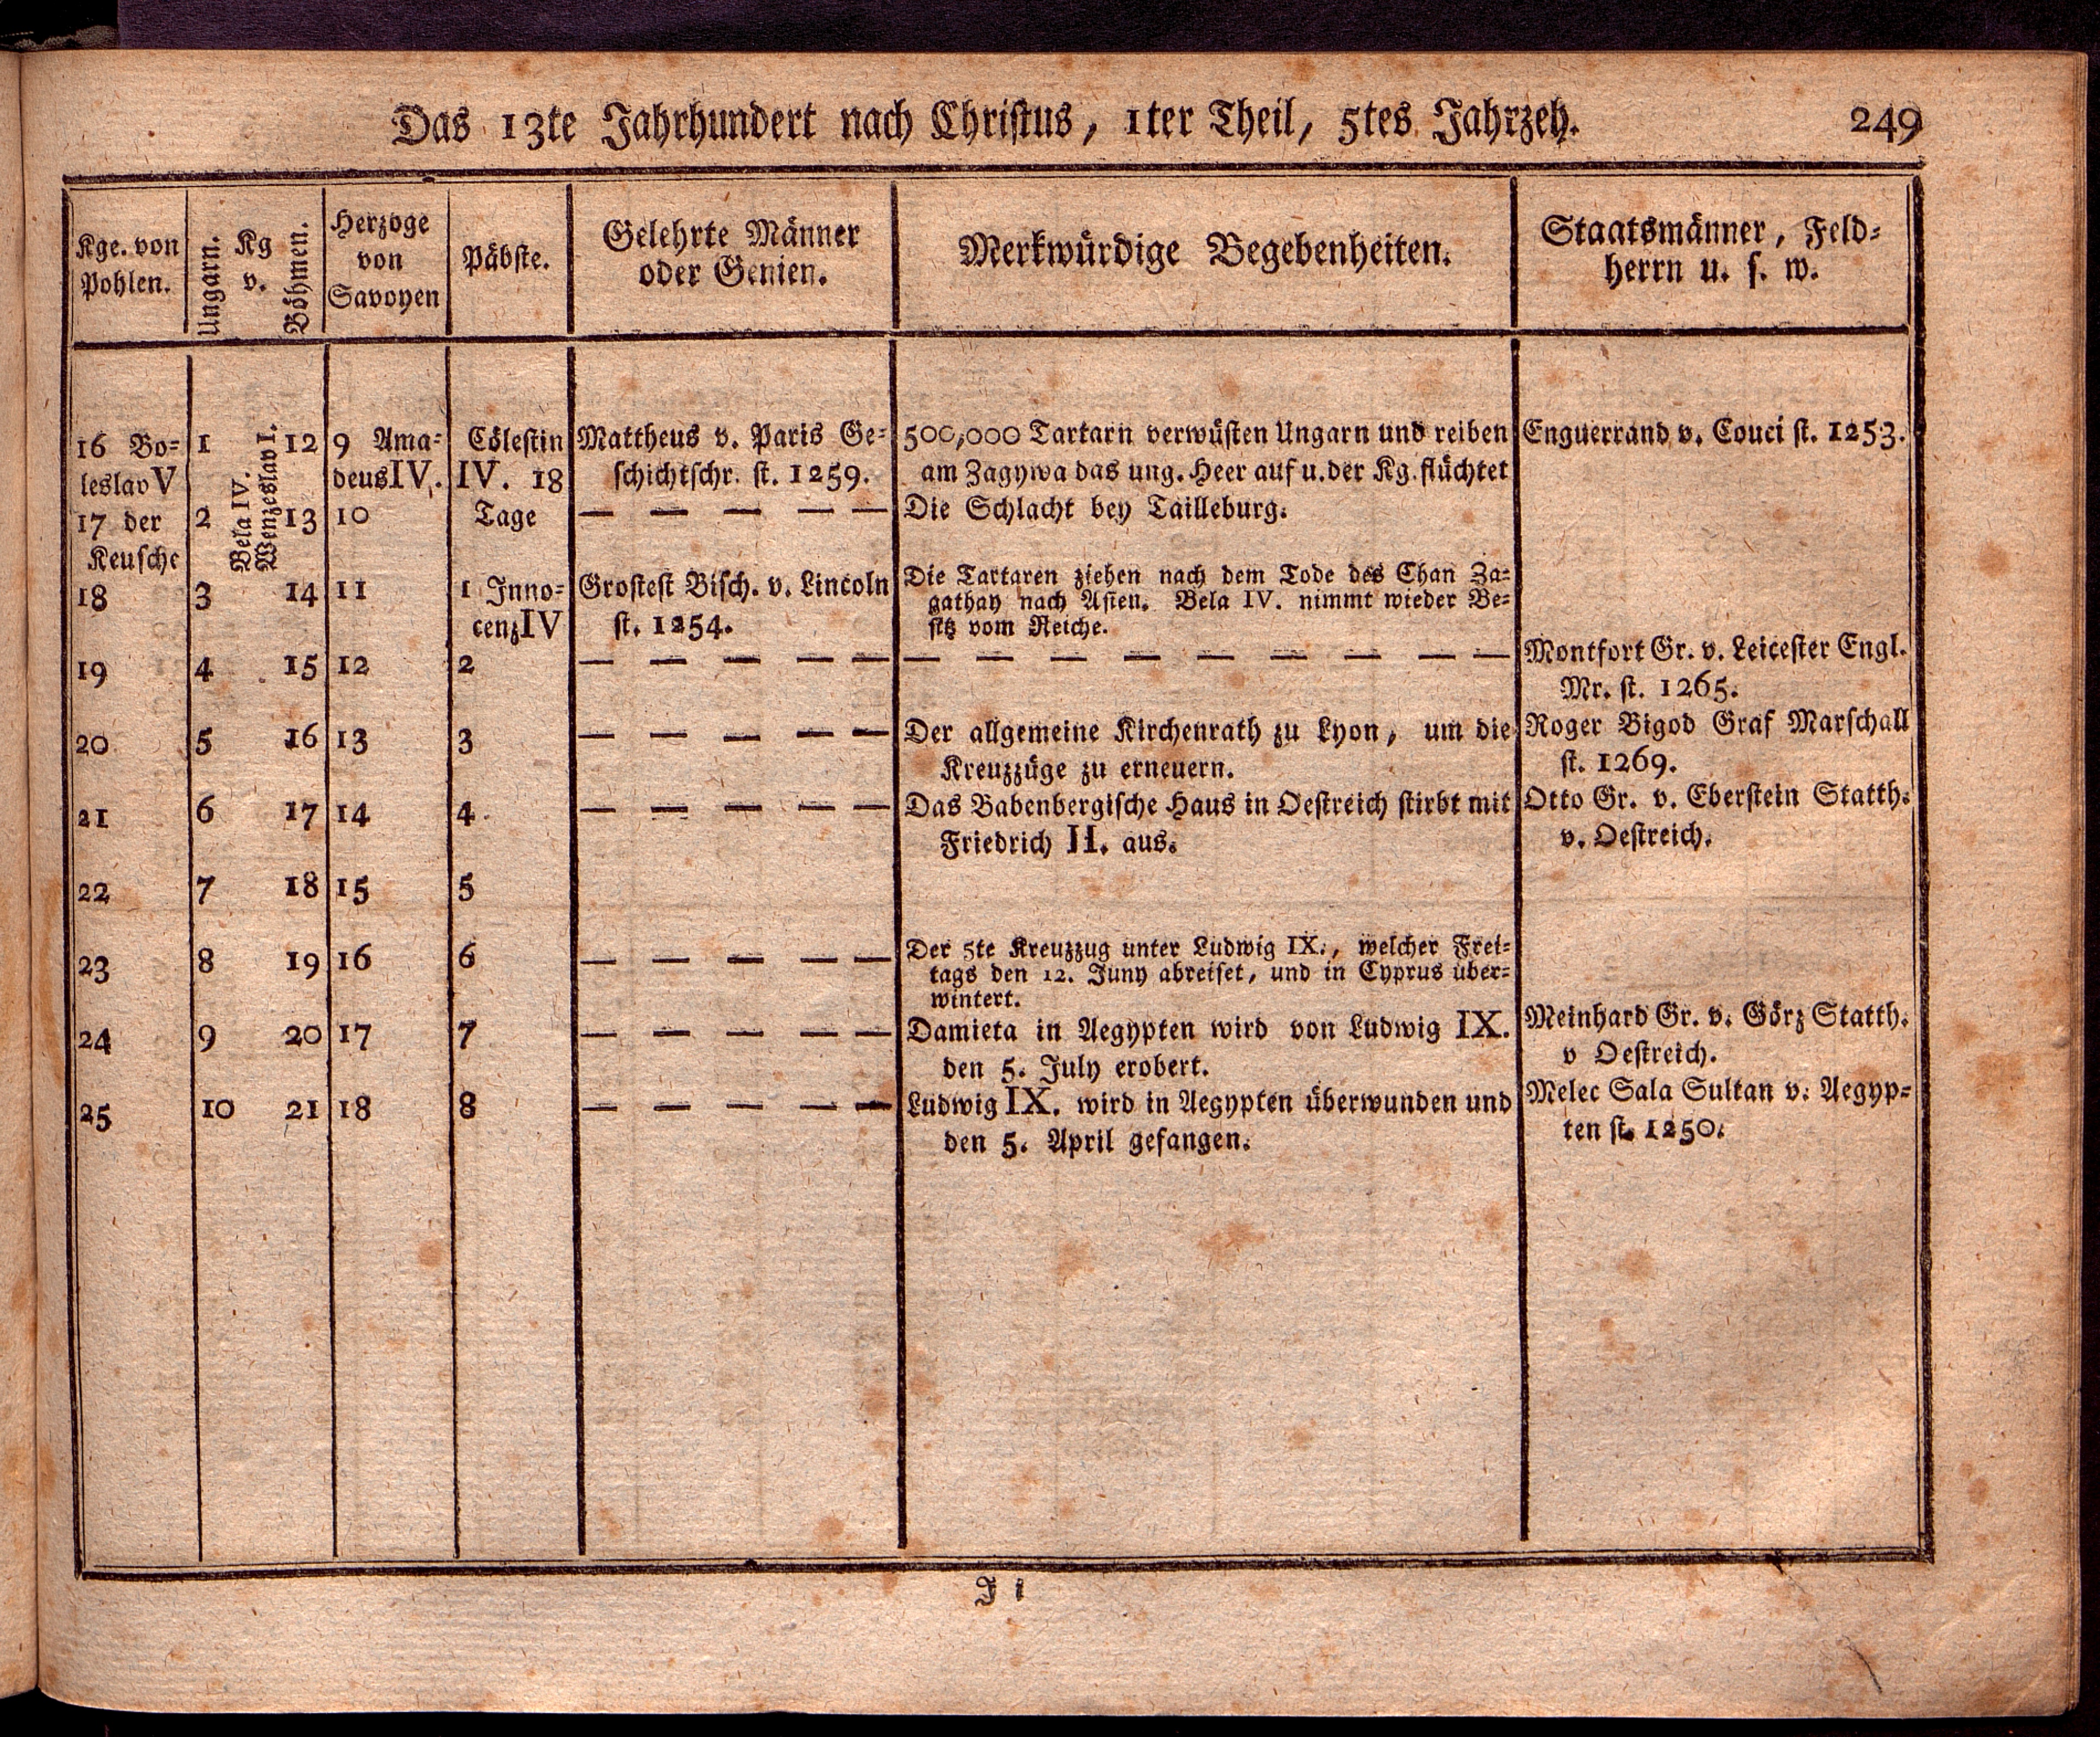 Das 13te Jahrhundert nach Christus, 1ter Theil, 5tes Jahrzeh. 249
Kge. von
Pohlen.
Ungarn.
Kg
v.
Böhmen.
Herzoge
von
Savoyen
Päbste.
Gelehrte Männer
oder Genien.
Merkwürdige Begebenheiten.
Staatsmänner, Feld-
herrn u. s. w.
16 Bo-
leslav V
17 der
Keusche
18
19
20
21
22
23
24
25
1
2
3
4
5
6
7
8
9
10
Bela IV.
Wenzeslav I.
12
13
14
15
16
17
18
19
20
21
9 Ama-
deus IV.
10
11
12
13
14
15
16
17
18
Cölestin
IV. 18
Tage
1 Inno-
cenz IV
2
3
4
5
6
7
8
Mattheus v. Paris Ge-
schichtschr. st. 1259.
— — — — —
Grostest Bisch. v. Lincoln
st. 1254.
— — — — —
— — — — —
— — — — —
— — — — —
— — — — —
— — — — —
500,000 Tartarn verwüsten Ungarn und reiben
am Zagywa das ung. Heer auf u. der Kg. flüchtet
Die Schlacht bey Tailleburg.
Die Tartaren ziehen nach dem Tode des Chan Za-
gathay nach Asien. Bela IV. nimmt wieder Be-
sitz vom Reiche.
— — — — — — — — —
Der allgemeine Kirchenrath zu Lyon, um die
Kreuzzüge zu erneuern.
Das Babenbergische Haus in Oestreich stirbt mit
Friedrich II. aus.
Der 5te Kreuzzug unter Ludwig IX., welcher Frei-
tags den 12. Juny abreiset, und in Cyprus über-
wintert.
Damieta in Aegypten wird von Ludwig IX.
den 5. July erobert.
Ludwig IX. wird in Aegypten überwunden und
den 5. April gefangen.
Enguerrand v. Couci st. 1253.
Montfort Gr. v. Leicester Engl.
Mr. st. 1265.
Roger Bigod Graf Marschall
st. 1269.
Otto Gr. v. Eberstein Statth.
v. Oestreich.
Meinhard Gr. v. Görz Statth.
v Oestreich.
Melec Sala Sultan v. Aegyp-
ten st. 1250.
J i